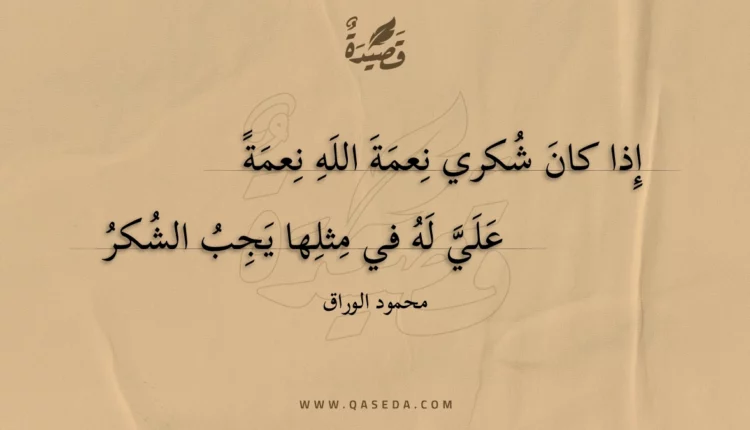 قَصِيدَةٌ
إِذا كانَ شُكري نِعمَةَ اللَهِ نِعمَةً
عَلَيَّ لَهُ في مِثلِها يَجِبُ الشُكرُ
محمود الوراق
WWW.QASEDA.COM